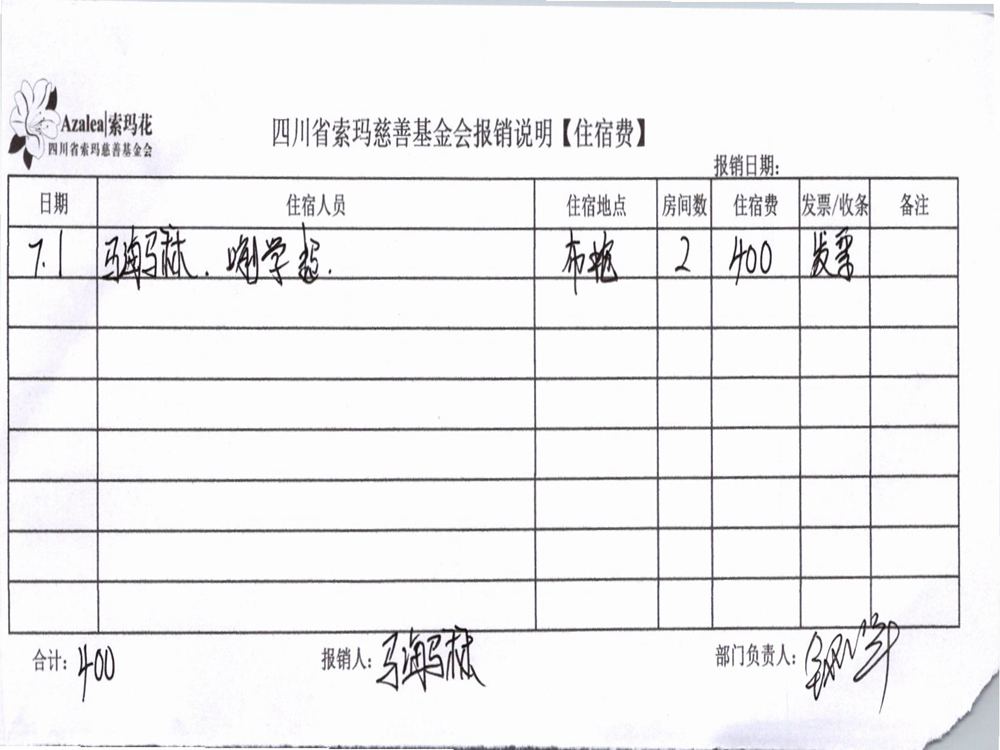 Azalea|索玛花
四川省索玛慈善基金会
四川省索玛慈善基金会报销说明【住宿费】
报销日期:
日期 住宿人员 住宿地点 房间数 住宿费 发票/收条 备注
7.1 马海马林. 学 布拖 2 400 发票
合计: 400 报销人: 马海马林 部门负责人: